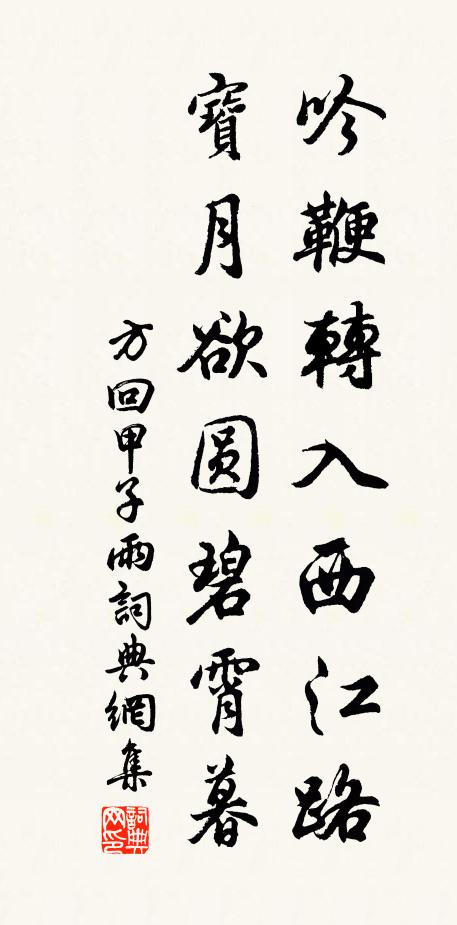 吟鞭轉入西江路
寶月欲圓碧霄暮
方回甲子雨詞典網集
詞典網印